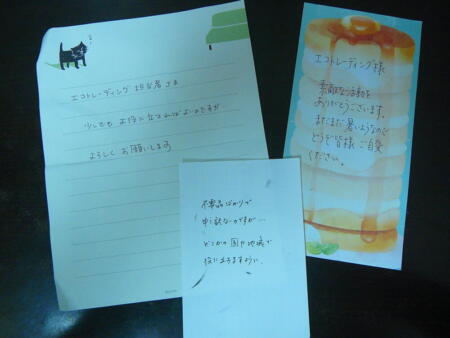 エコトレーディング 担当者さま
少しでも お役に立てればよいのですが、
よろしく お願いします
エコトレーディング様
素敵な活動を
ありがとうございます。
まだまだ暑いようなので
どうぞ皆様 ご自愛
ください。
不要品ばかりで
申し訳ないのですが…
どこかの国や地域で
役に立ちますように.